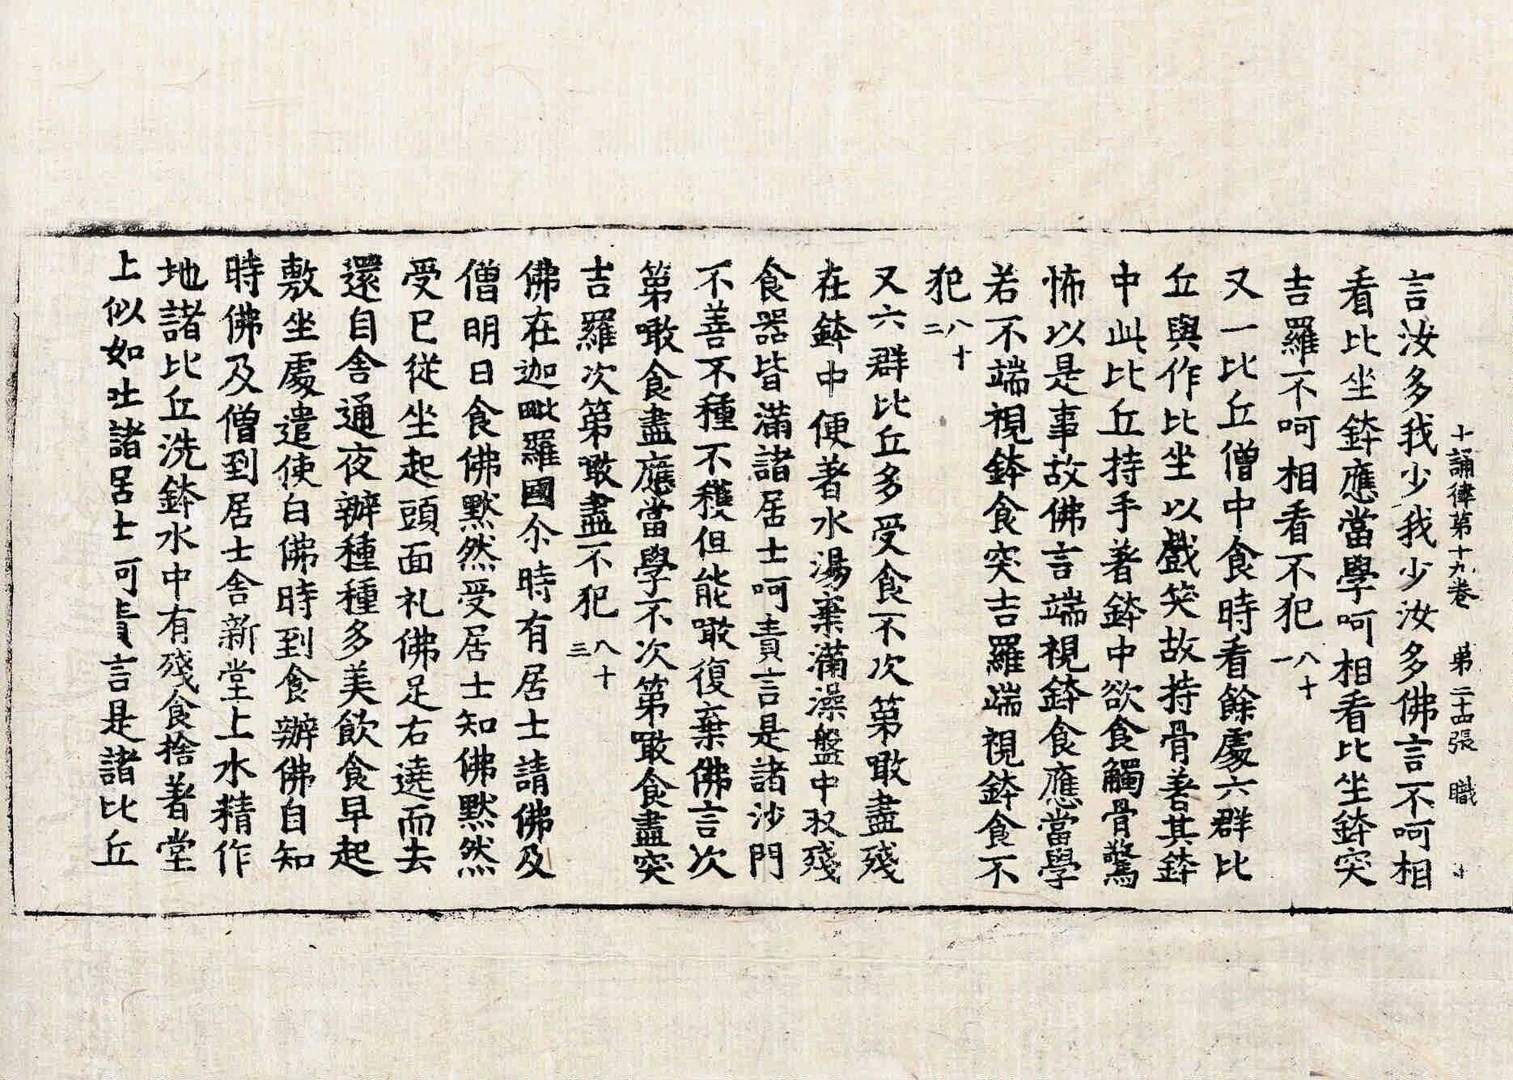 十誦律第十九卷　第二十四張　職
言汝多我少我少汝多佛言不呵相
看比坐鉢應當學呵相看比坐鉢突
吉羅不呵相看不犯八十一
又一比丘僧中食時看餘處六群比
丘與作比坐以戲笑故持骨著其鉢
中此比丘持手著鉢中欲食觸骨驚
怖以是事故佛言端視鉢食應當學
若不端視鉢食突吉羅端視鉢食不
犯八十二
又六群比丘多受食不次第噉盡殘
在鉢中便著水湯棄滿澡盤中𣪍殘
食器皆滿諸居士呵責言是諸沙門
不善不種不穫但能噉復棄佛言次
第噉食盡應當學不次第噉食盡突
吉羅次第噉盡不犯八十三
佛在迦毗羅國尒時有居士請佛及
僧明日食佛默然受居士知佛默然
受已從坐起頭面礼佛足右遶而去
還自舍通夜辦種種多美飲食早起
敷坐處遣使白佛時到食辦佛自知
時佛及僧到居士舍新堂上水精作
地諸比丘洗鉢水中有殘食捨著堂
上似如吐諸居士呵責言是諸比丘